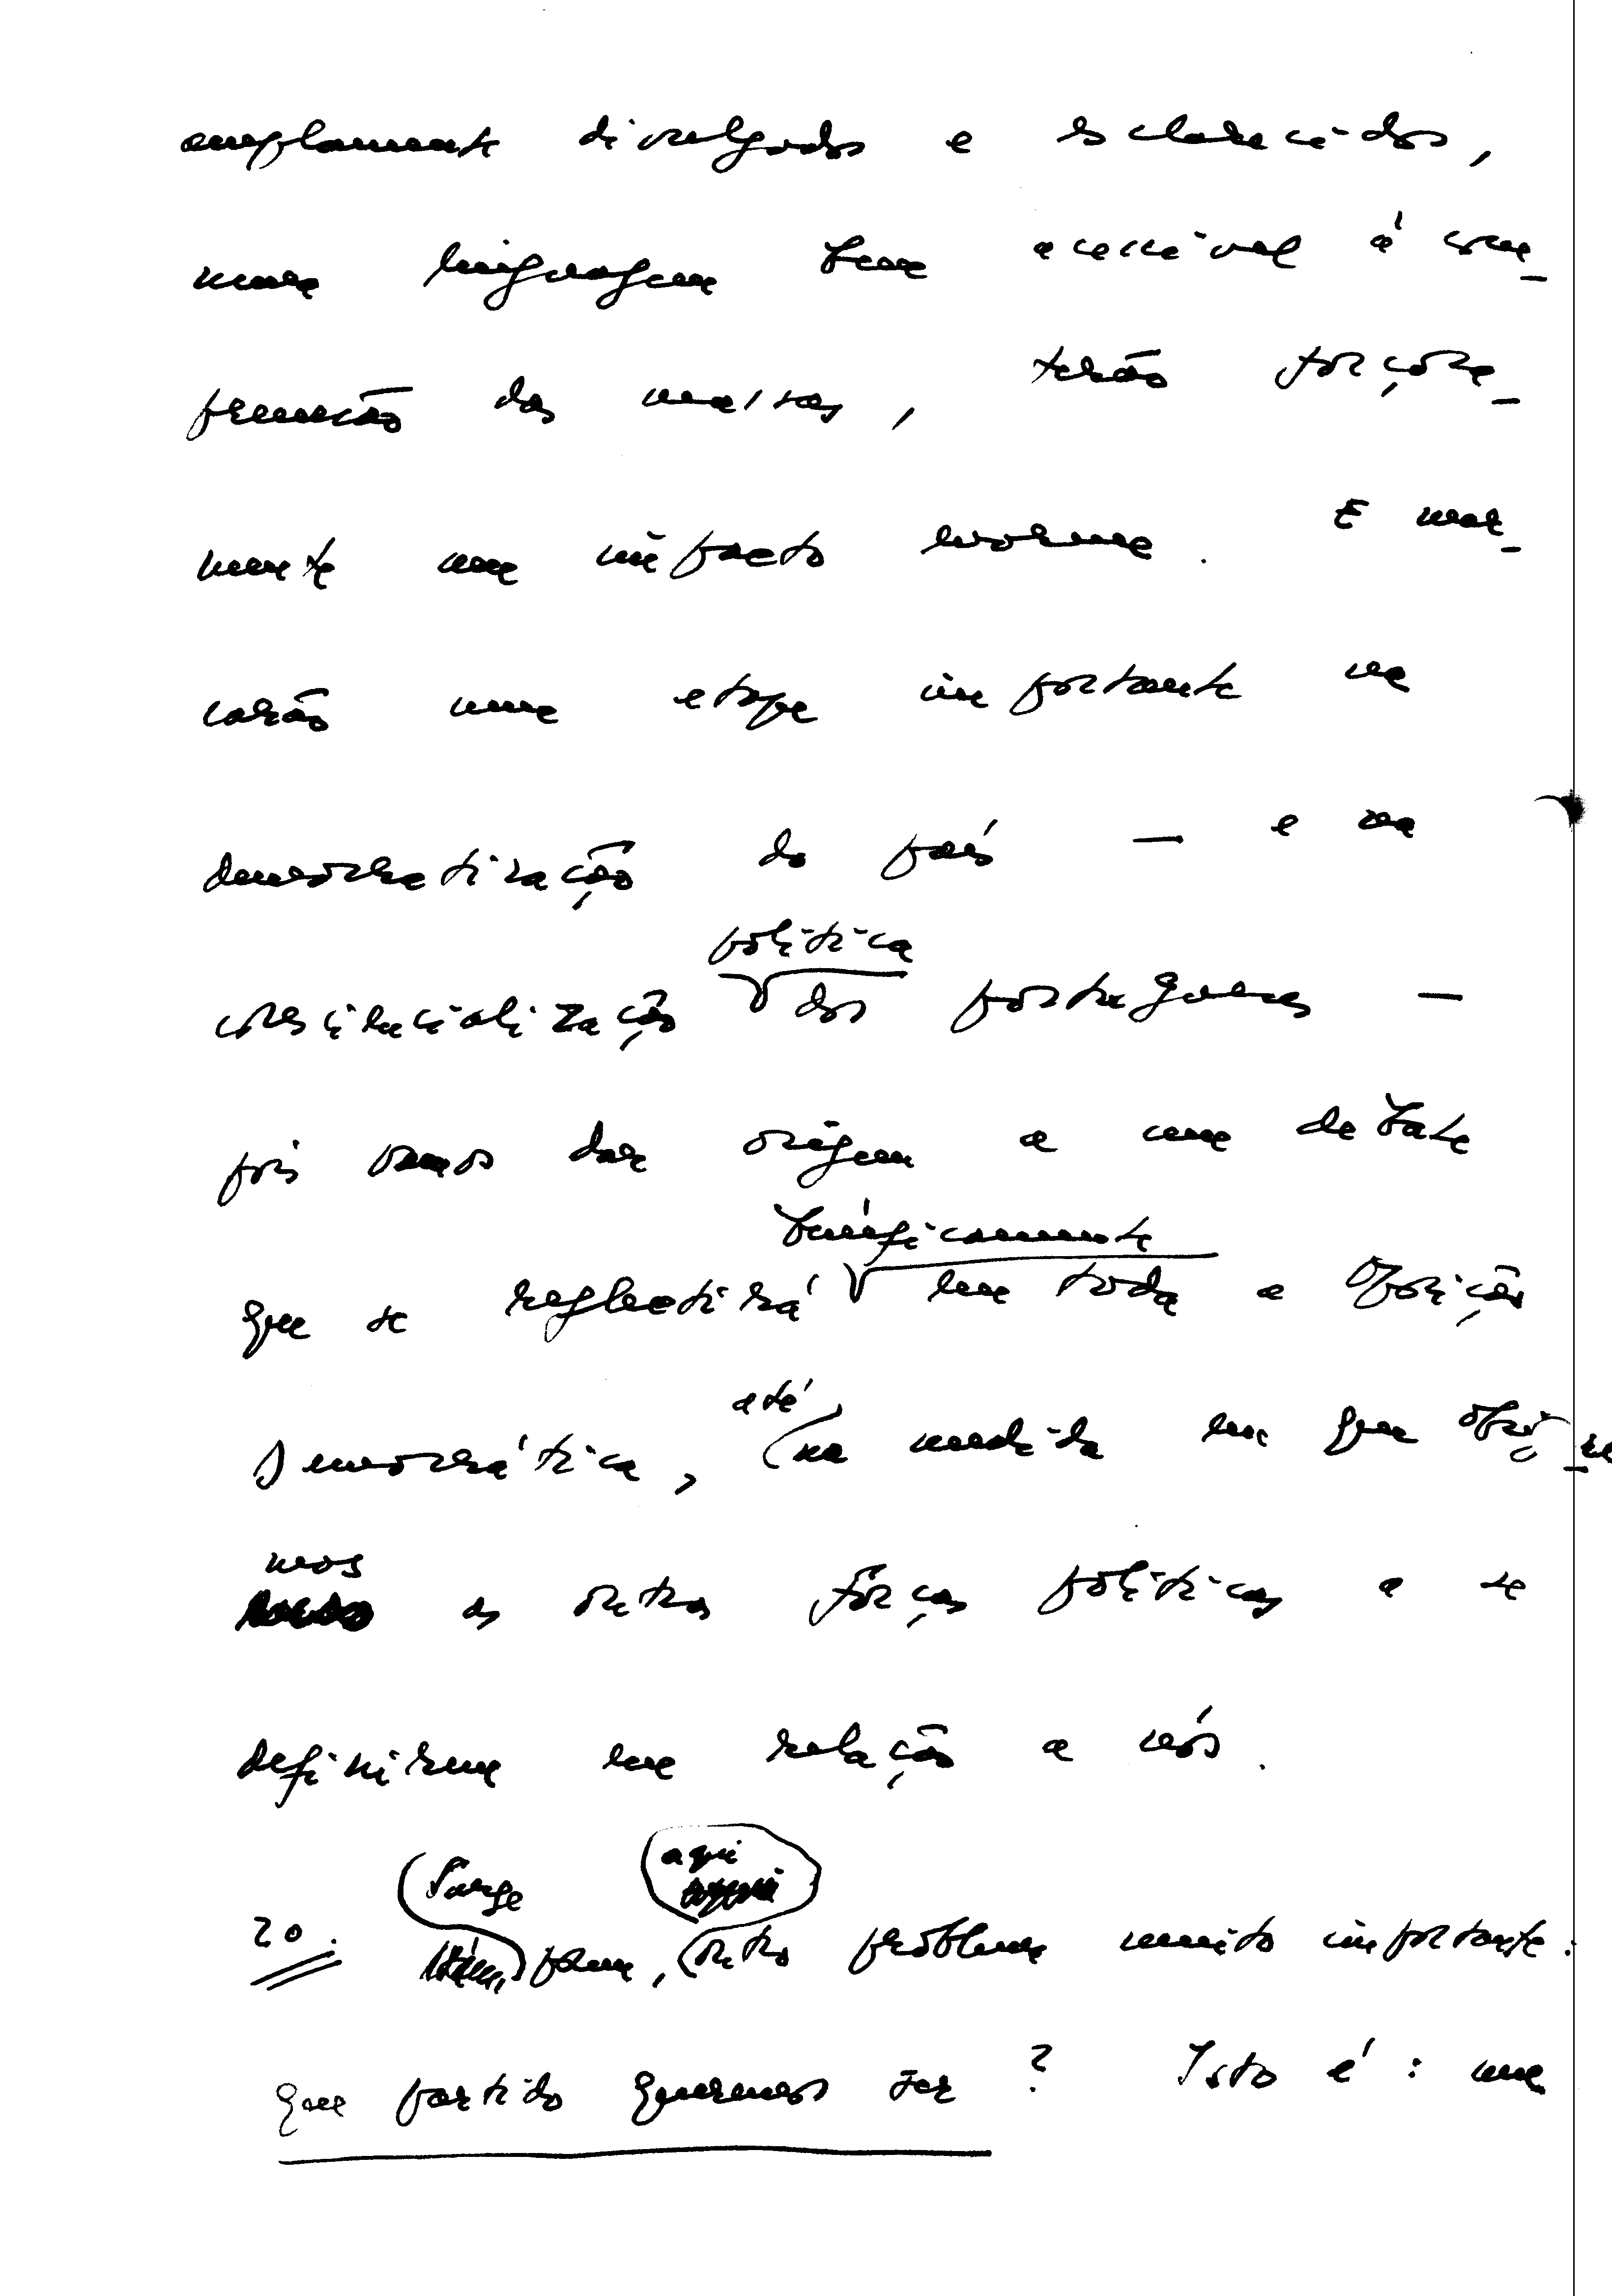 amplamente divulgados e esclarecidos,
numa linguagem bem acessível à com-
preensão das massas, terão forçosa-
mente um impacto enorme. E mar-
carão uma etapa importante na
democratização do país — e na
política
consciencialização dos portugueses —
pois vamos dar origem a um debate
benèficamente
que se reflectirá em toda a Oposição
até
Democrática, na medida em que obriga-
mos
as outras forças políticas a se
definirem em relação a nós.
Surge aqui
20. porém, outro problema muito importante:
que partido queremos ser? Isto é: um